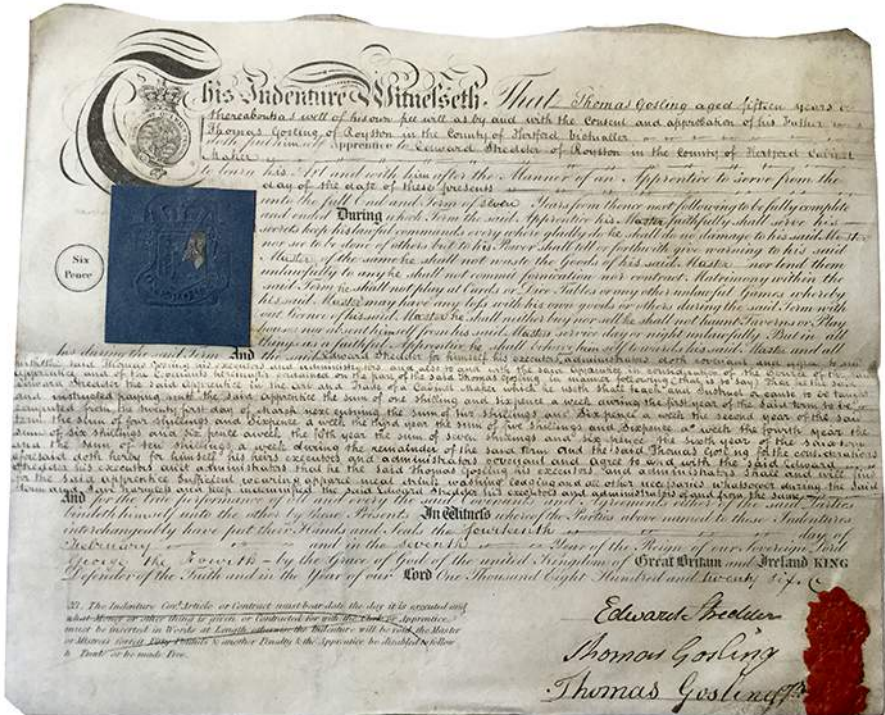 This Indenture Witnesseth, That Thomas Gosling aged fifteen years or
thereabouts as well of his own free will as by and with the Consent and approbation of his Father
Thomas Gosling of Royston in the County of Hertford Victualler
doth put himself Apprentice to Edward Stredder of Royston in the County of Hertford Cabinet
Maker
to learn his Art and with him after the Manner of an Apprentice to serve from the
day of the date of these presents
unto the full End and Term of seven Years from thence next following to be fully complete
and ended During which Term the said Apprentice his Master faithfully shall serve his
secrets keep his lawful commands every where gladly do he shall do no damage to his said Master
nor see to be done of others but to his Power shall tell or forthwith give warning to his said
Master of the same he shall not waste the Goods of his said Master nor lend them
unlawfully to any he shall not commit fornication nor contract Matrimony within the
said Term he shall not play at Cards or Dice Tables or any other unlawful Games whereby
his said Master may have any loss with his own goods or others during the said Term with
out Licence of his said Master he shall neither buy nor sell he shall not haunt Taverns or Play
houses nor absent himself from his said Masters service day or night unlawfully But in all
things as a faithful Apprentice he shall behave himself towards his said Master and all
his during the said Term And the said Edward Stredder for himself his executors administrators doth covenant and agree to and
with the said Thomas Gosling his executors and administrators and also to and with the said Apprentice in consideration of the
Apprentice and of the Covenants hereinafter contained on the part of the said Thomas Gosling in manner following (that is to say) That he the said
Edward Stredder the said Apprentice in the Art and Trade of a Cabinet Maker which he useth shall teach and Instruct or cause to be taught
and instructed paying unto the said Apprentice the sum of one shilling and sixpence a week during the first year of the said term to be
computed from the twenty first day of March next ensuing the sum of shillings and Six pence a week the second year of the said
term the sum of four shillings and Sixpence a week the third year the sum of five shillings and Sixpence a week the fourth year the
sum of six shillings and six pence a week the fifth year the sum of seven shillings and six pence the sixth year of the said term
and the sum of ten shillings a week during the remainder of the said term And the said Thomas Gosling for the considerations
aforesaid doth hereby for himself his heirs executors and administrators covenant and agree to and with the said Edward
Stredder his executors and administrators that he the said Thomas Gosling his executors and administrators shall and will find
for the said Apprentice sufficient wearing apparel meat drink washing lodging and all other necessaries whatsoever during the said
term and save harmless and keep indemnified the said Edward Stredder his executors and administrators of and from the same
And for the true performance of all and every the said Covenants and Agreements either of the said Parties
bindeth himself unto the other by these Presents In Witness whereof the Parties above named to these Indentures
interchangeably have put their Hands and Seals the fourteenth day of
February and in the seventh Year of the Reign of our Sovereign Lord
George the Fourth by the Grace of God of the united Kingdom of Great Britain and Ireland KING
Defender of the Faith and in the Year of our Lord One Thousand Eight Hundred and twenty six.
Six
Pence
The Indenture Covt. Article or Contract must bear date the day it is executed and
what Money or other thing is given or Contracted for with the Clerk or Apprentice,
must be inserted in Words at Length otherwise the Indenture will be void, the Master
or Mistress forfeit Fifty Pounds & another Penalty & the Apprentice be disabled to follow
his Trade or be made Free.
Edward Stredder
Thomas Gosling
Thomas Gosling